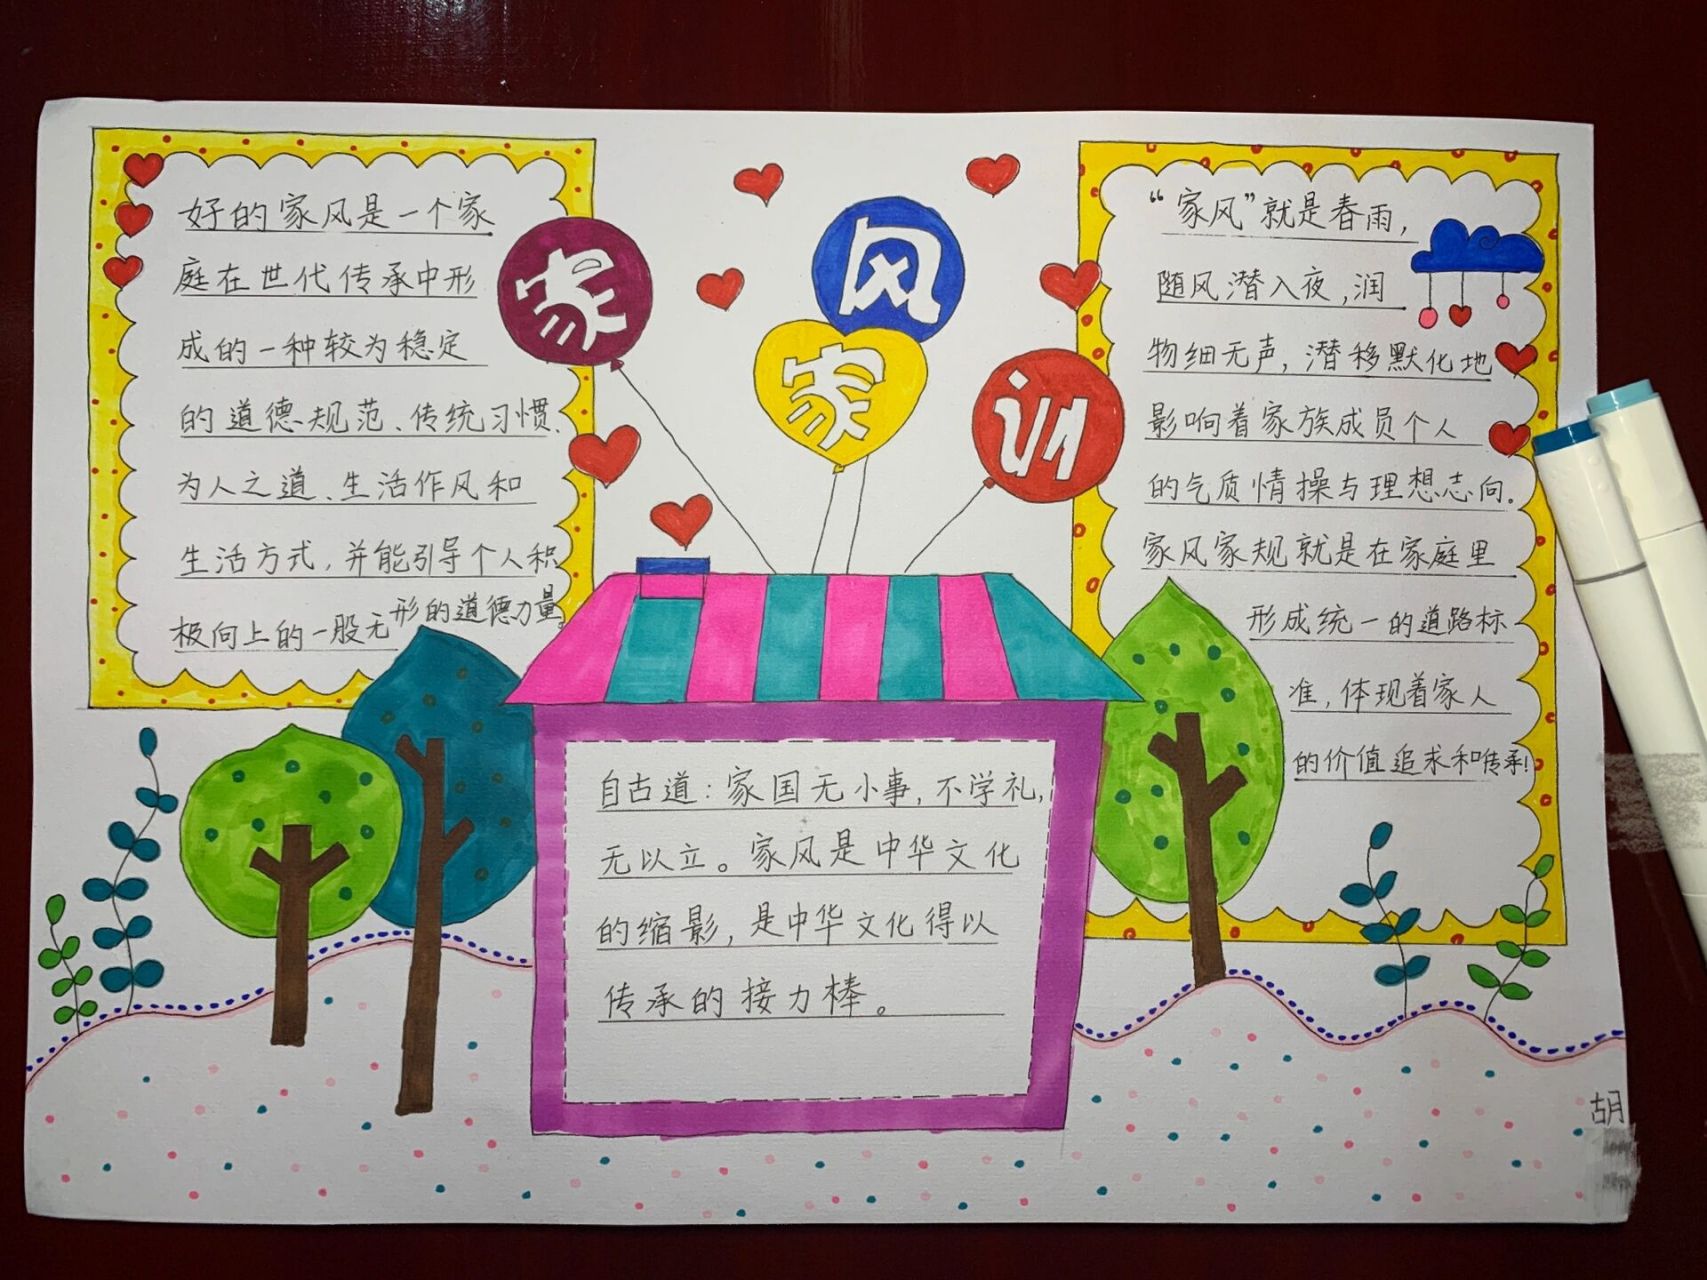 家风家训
好的家风是一个家
庭在世代传承中形
成的一种较为稳定
的道德规范、传统习惯、
为人之道、生活作风和
生活方式，并能引导个人积
极向上的一股无形的道德力量。
自古道：家国无小事，不学礼，
无以立。家风是中华文化
的缩影，是中华文化得以
传承的接力棒。
“家风”就是春雨，
随风潜入夜，润
物细无声，潜移默化地
影响着家族成员个人
的气质情操与理想志向。
家风家规就是在家庭里
形成统一的道路标
准，体现着家人
的价值追求和传承！
胡